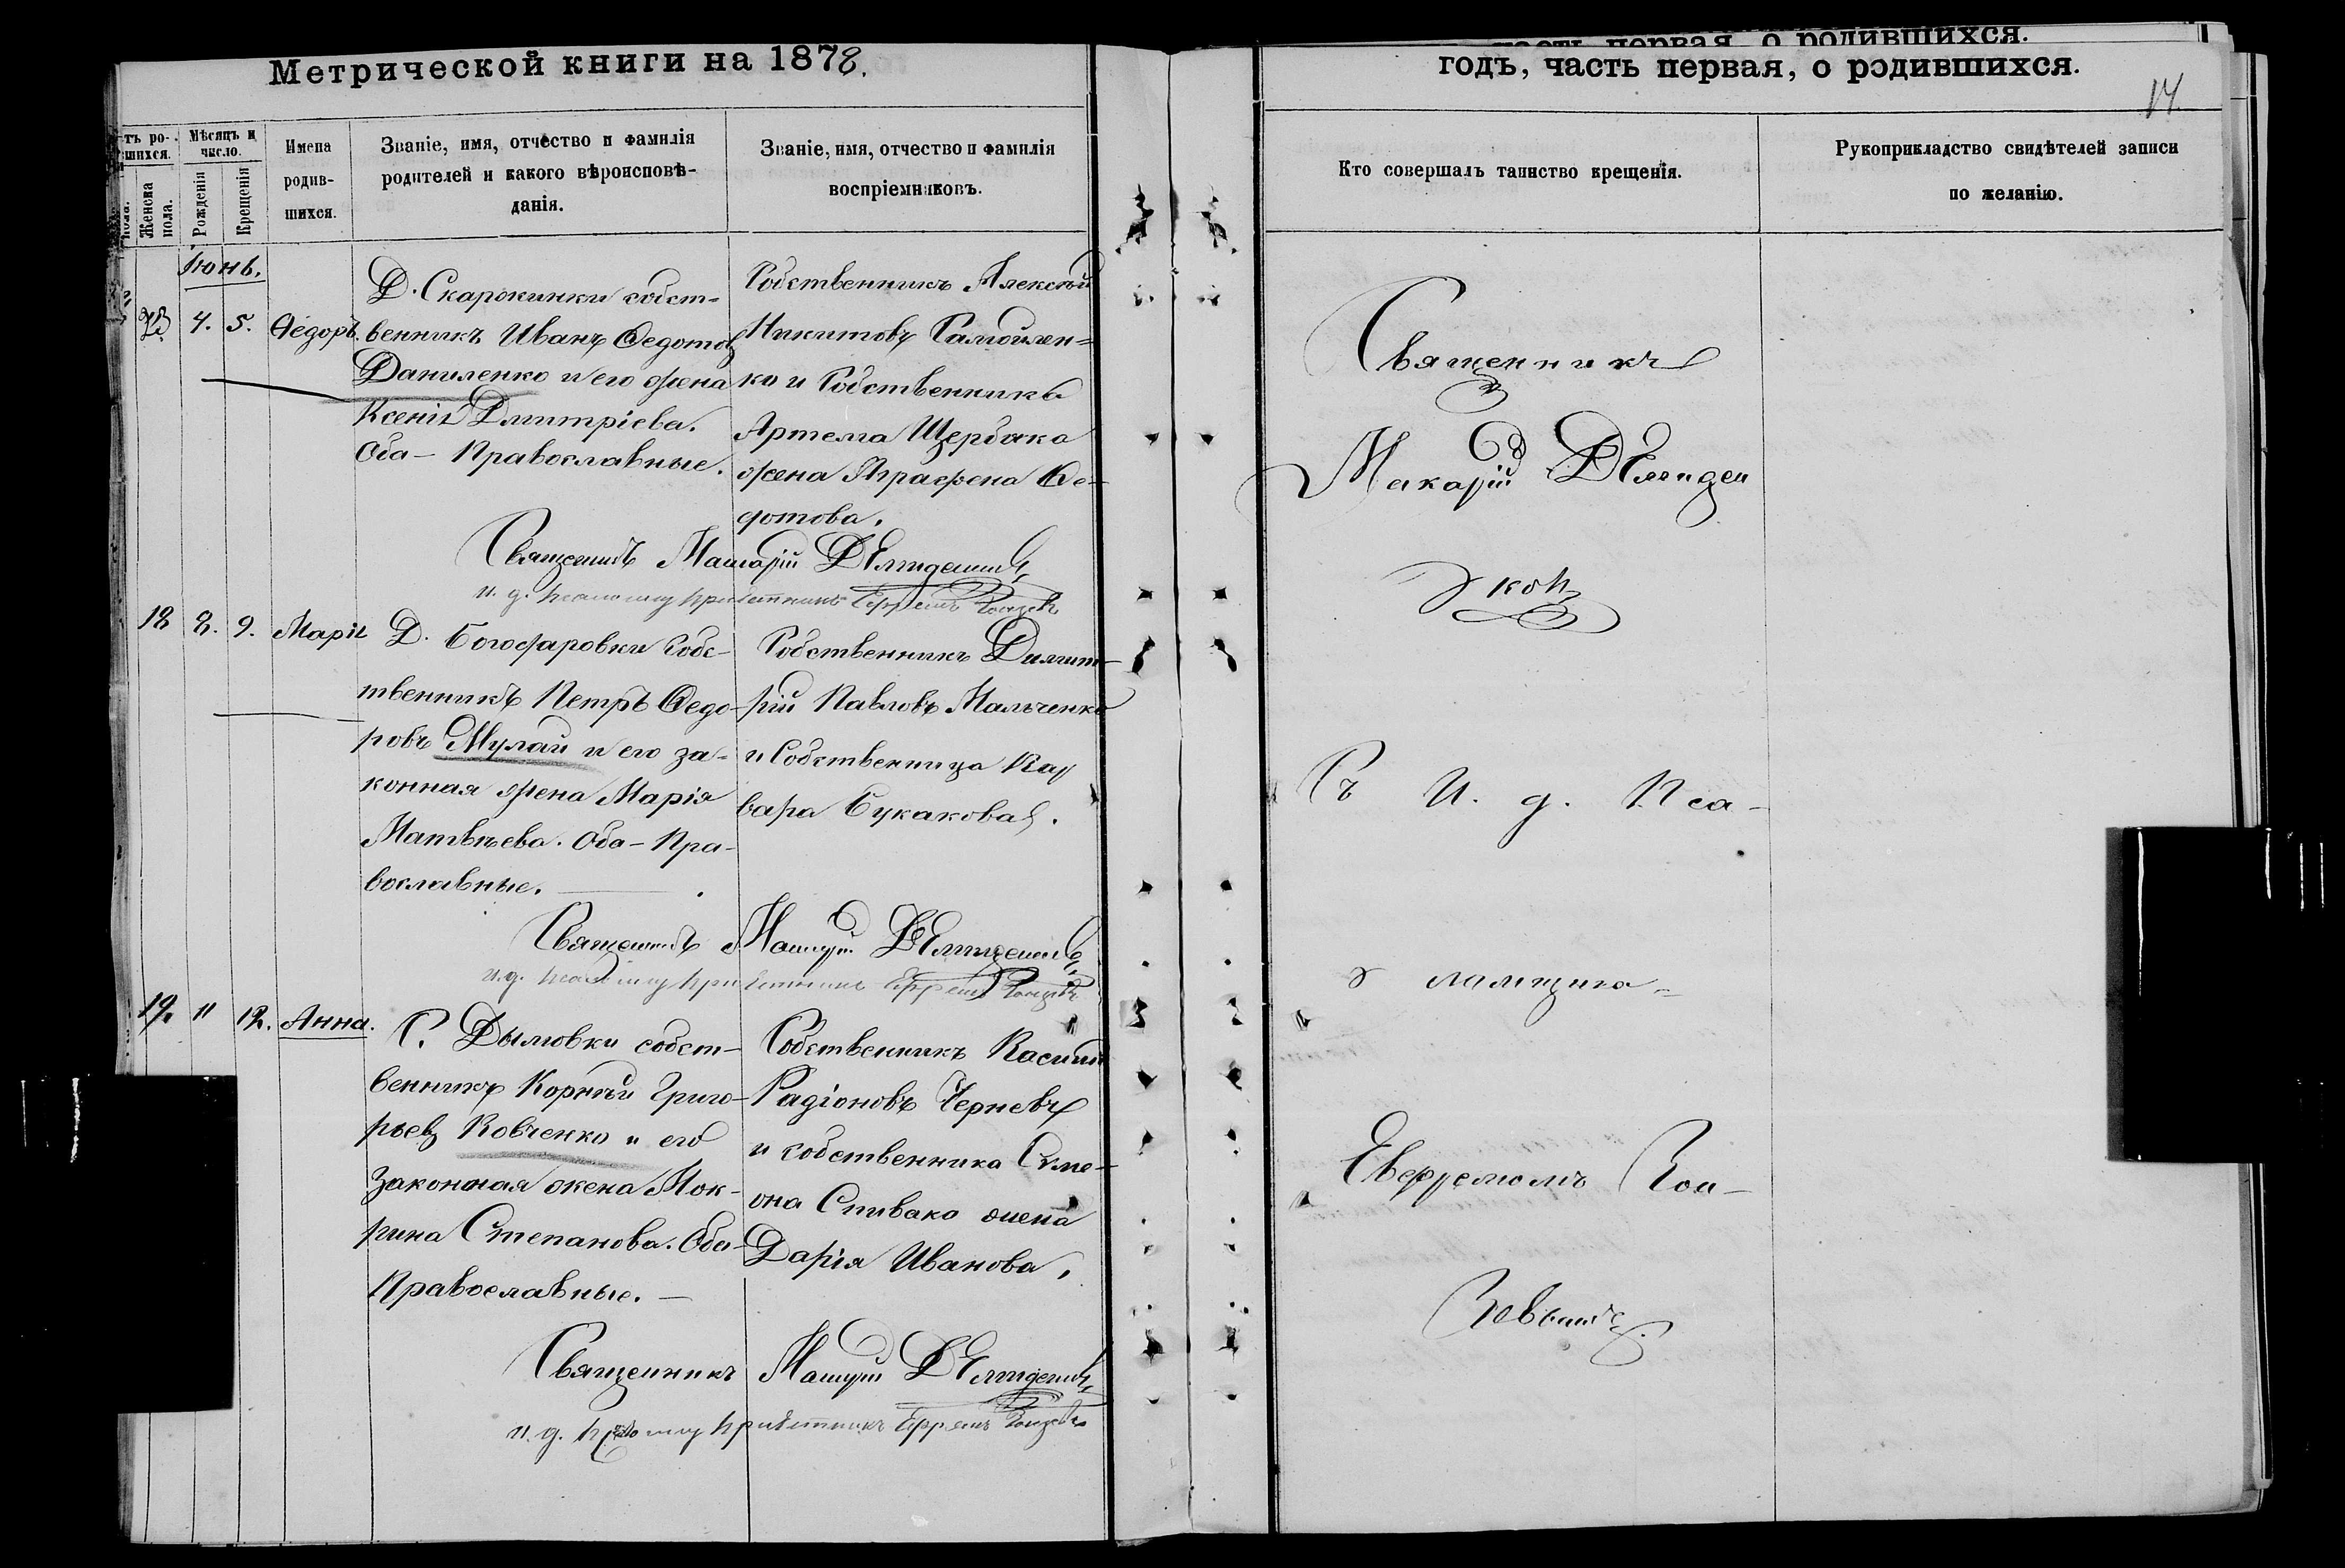 Метрической книги на 1878.
тъ ро-
шихся.
Мѣсяцъ и
число.
Женска
пола.
Рожденія
Крещенія
Имена
родив-
шихся.
Званіе, имя, отчество и фамилія
родителей и какого вѣроисповѣ-
данія.
Званіе, имя, отчество и фамилія
воспріемниковъ.
Іюнь.
4. 5. Ѳедоръ.
Д. Скарокинки собст-
венникъ Иванъ Ѳедотовъ
Даниленко и его жена
Ксенія Дмитріева.
Оба - Православные.
Собственникъ Алексѣй
Никитовъ Самойлен-
ко и Собственника
Артема Щербака
жена Аграфена Ѳе-
дотова.
Священникъ Макарій
и. д. псаломщ Ефремъ
18 8. 9. Марія
Д. Богодаровки Собс-
твенникъ Петръ Ѳедо-
ровъ Мулай и его за-
конная жена Марія
Матвѣева. Оба - Пра-
вославные.
Собственникъ Димит-
рій Павловъ Мальченко
и Собственница Вар
вара Букакова.
Священникъ Макарій
и. д. псаломщ Ефремъ
19. 11 12. Анна.
С. Дымовки собст-
венникъ Корнѣй Григо-
рьевъ Ковченко и его
законная жена Мок-
рина Степанова. Оба
Православные. -
Собственникъ Василій
Радіоновъ Черневъ
и собственника Симе-
она Спивака жена
Дарія Иванова.
Священникъ Макарій
и. д. Ефремъ
часть первая, о родившихся.
годъ, часть первая, о родившихся.
14
Кто совершалъ таинство крещенія.
Рукоприкладство свидѣтелей записи
по желанію.
Священникъ
Макарій
Съ И. д. Пса-
ломщика